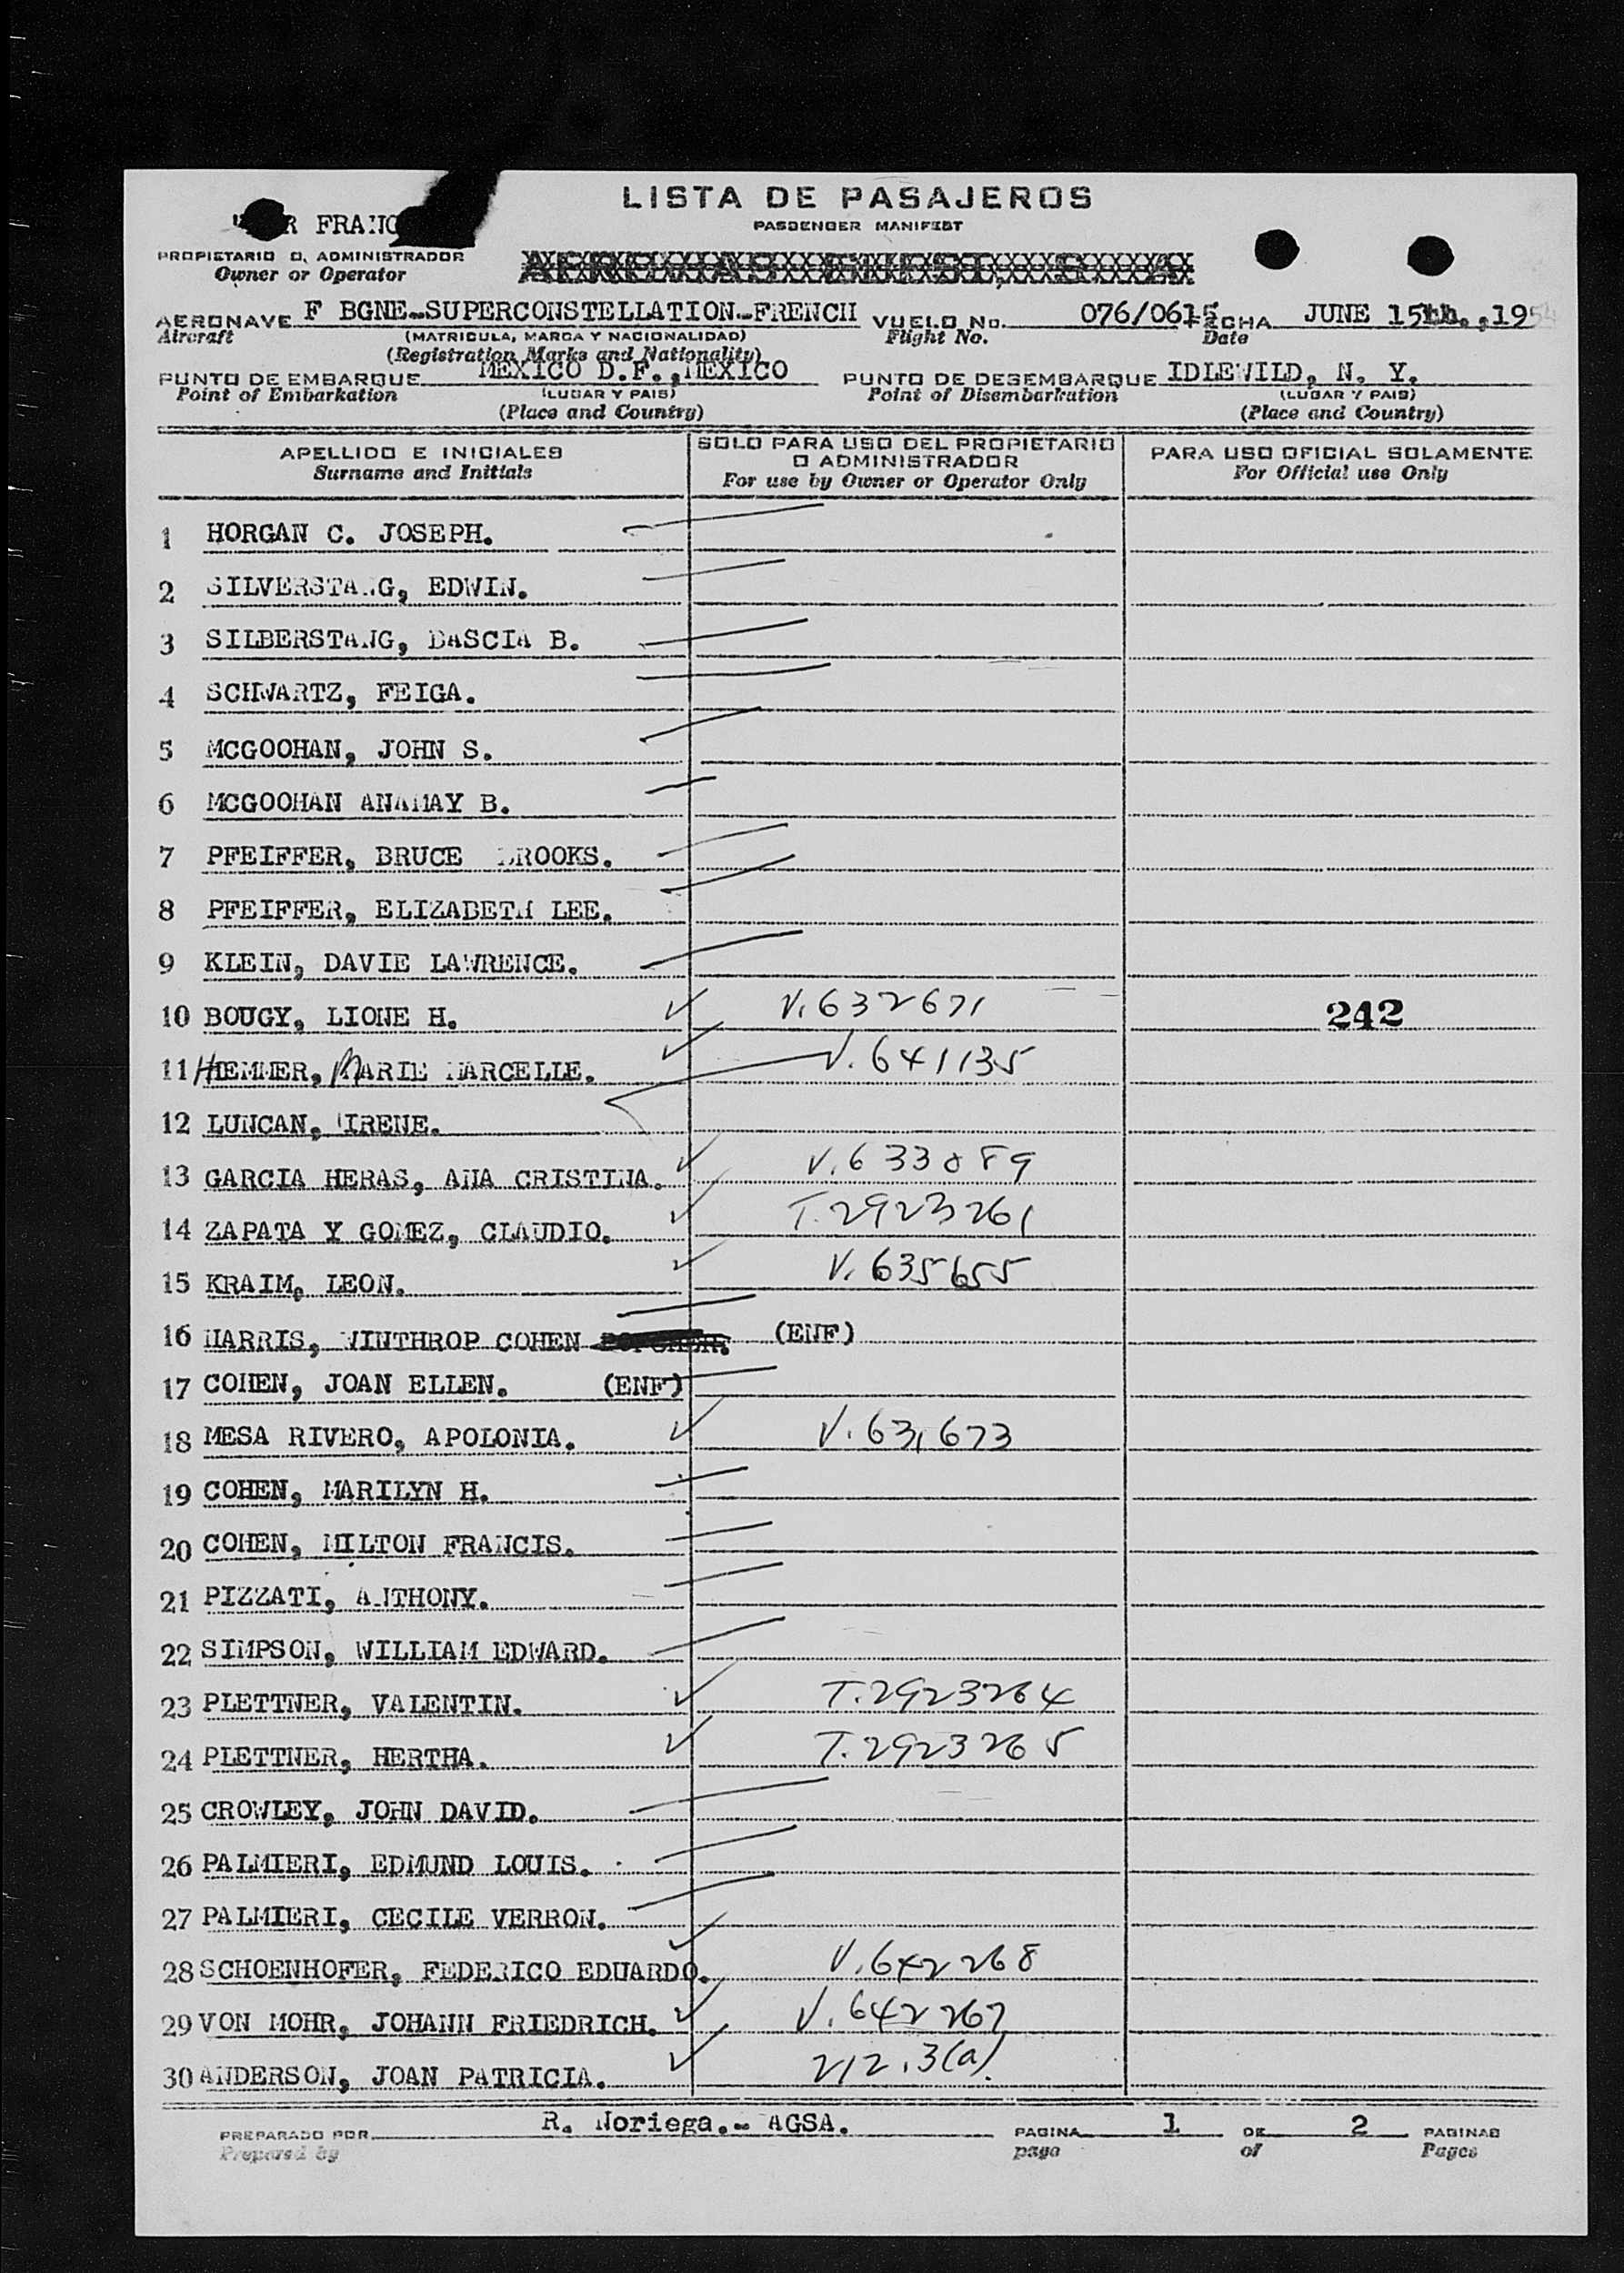 LISTA DE PASAJEROS
PASSENGER MANIFEST
R FRANC
PROPIETARIO O, ADMINISTRADOR
Owner or Operator
AERONAVE F BGNE-SUPERCONSTELLATION-FRENCH VUELO No. 076/0615 FECHA JUNE 15th.,1954
Aircraft (MATRICULA, MARCA Y NACIONALIDAD) Flight No. Date
(Registration Marks and Nationality)
PUNTO DE EMBARQUE MEXICO D.F.,MEXICO PUNTO DE DESEMBARQUE IDLEWILD, N. Y.
Point of Embarkation (LUGAR Y PAIS) Point of Disembarkation (LUGAR Y PAIS)
(Place and Country) (Place and Country)
APELLIDO E INICIALES SOLO PARA USO DEL PROPIETARIO O ADMINISTRADOR PARA USO OFICIAL SOLAMENTE
Surname and Initials For use by Owner or Operator Only For Official use Only
1 HORGAN C. JOSEPH.
2 SILVERSTANG, EDWIN.
3 SILBERSTANG, DASCIA B.
4 SCHWARTZ, FEIGA.
5 MCGOOHAN, JOHN S.
6 MCGOOHAN ANAMAY B.
7 PFEIFFER, BRUCE BROOKS.
8 PFEIFFER, ELIZABETH LEE.
9 KLEIN, DAVIE LAWRENCE.
10 BOUGY, LIONE H. V.632671 242
11 HIEMMER, MARIE MARCELLE. V.641135
12 LUNCAN, IRENE.
13 GARCIA HERAS, ANA CRISTINA. V.633889
14 ZAPATA Y GOMEZ, CLAUDIO. T.2923261
15 KRAIM, LEON. V.635655
16 HARRIS, WINTHROP COHEN (ENF)
17 COHEN, JOAN ELLEN. (ENF)
18 MESA RIVERO, APOLONIA. V.631673
19 COHEN, MARILYN H.
20 COHEN, MILTON FRANCIS.
21 PIZZATI, ANTHONY.
22 SIMPSON, WILLIAM EDWARD.
23 PLETTNER, VALENTIN. T.2923264
24 PLETTNER, HERTHA. T.2923265
25 CROWLEY, JOHN DAVID.
26 PALMIERI, EDMUND LOUIS.
27 PALMIERI, CECILE VERRON.
28 SCHOENHOFER, FEDERICO EDUARDO. V.642268
29 VON MOHR, JOHANN FRIEDRICH. V.642267
30 ANDERSON, JOAN PATRICIA. 212.3(a)
PREPARADO POR R. Noriega.- AGSA. PAGINA 1 DE 2 PAGINAS
Prepared by page of Pages